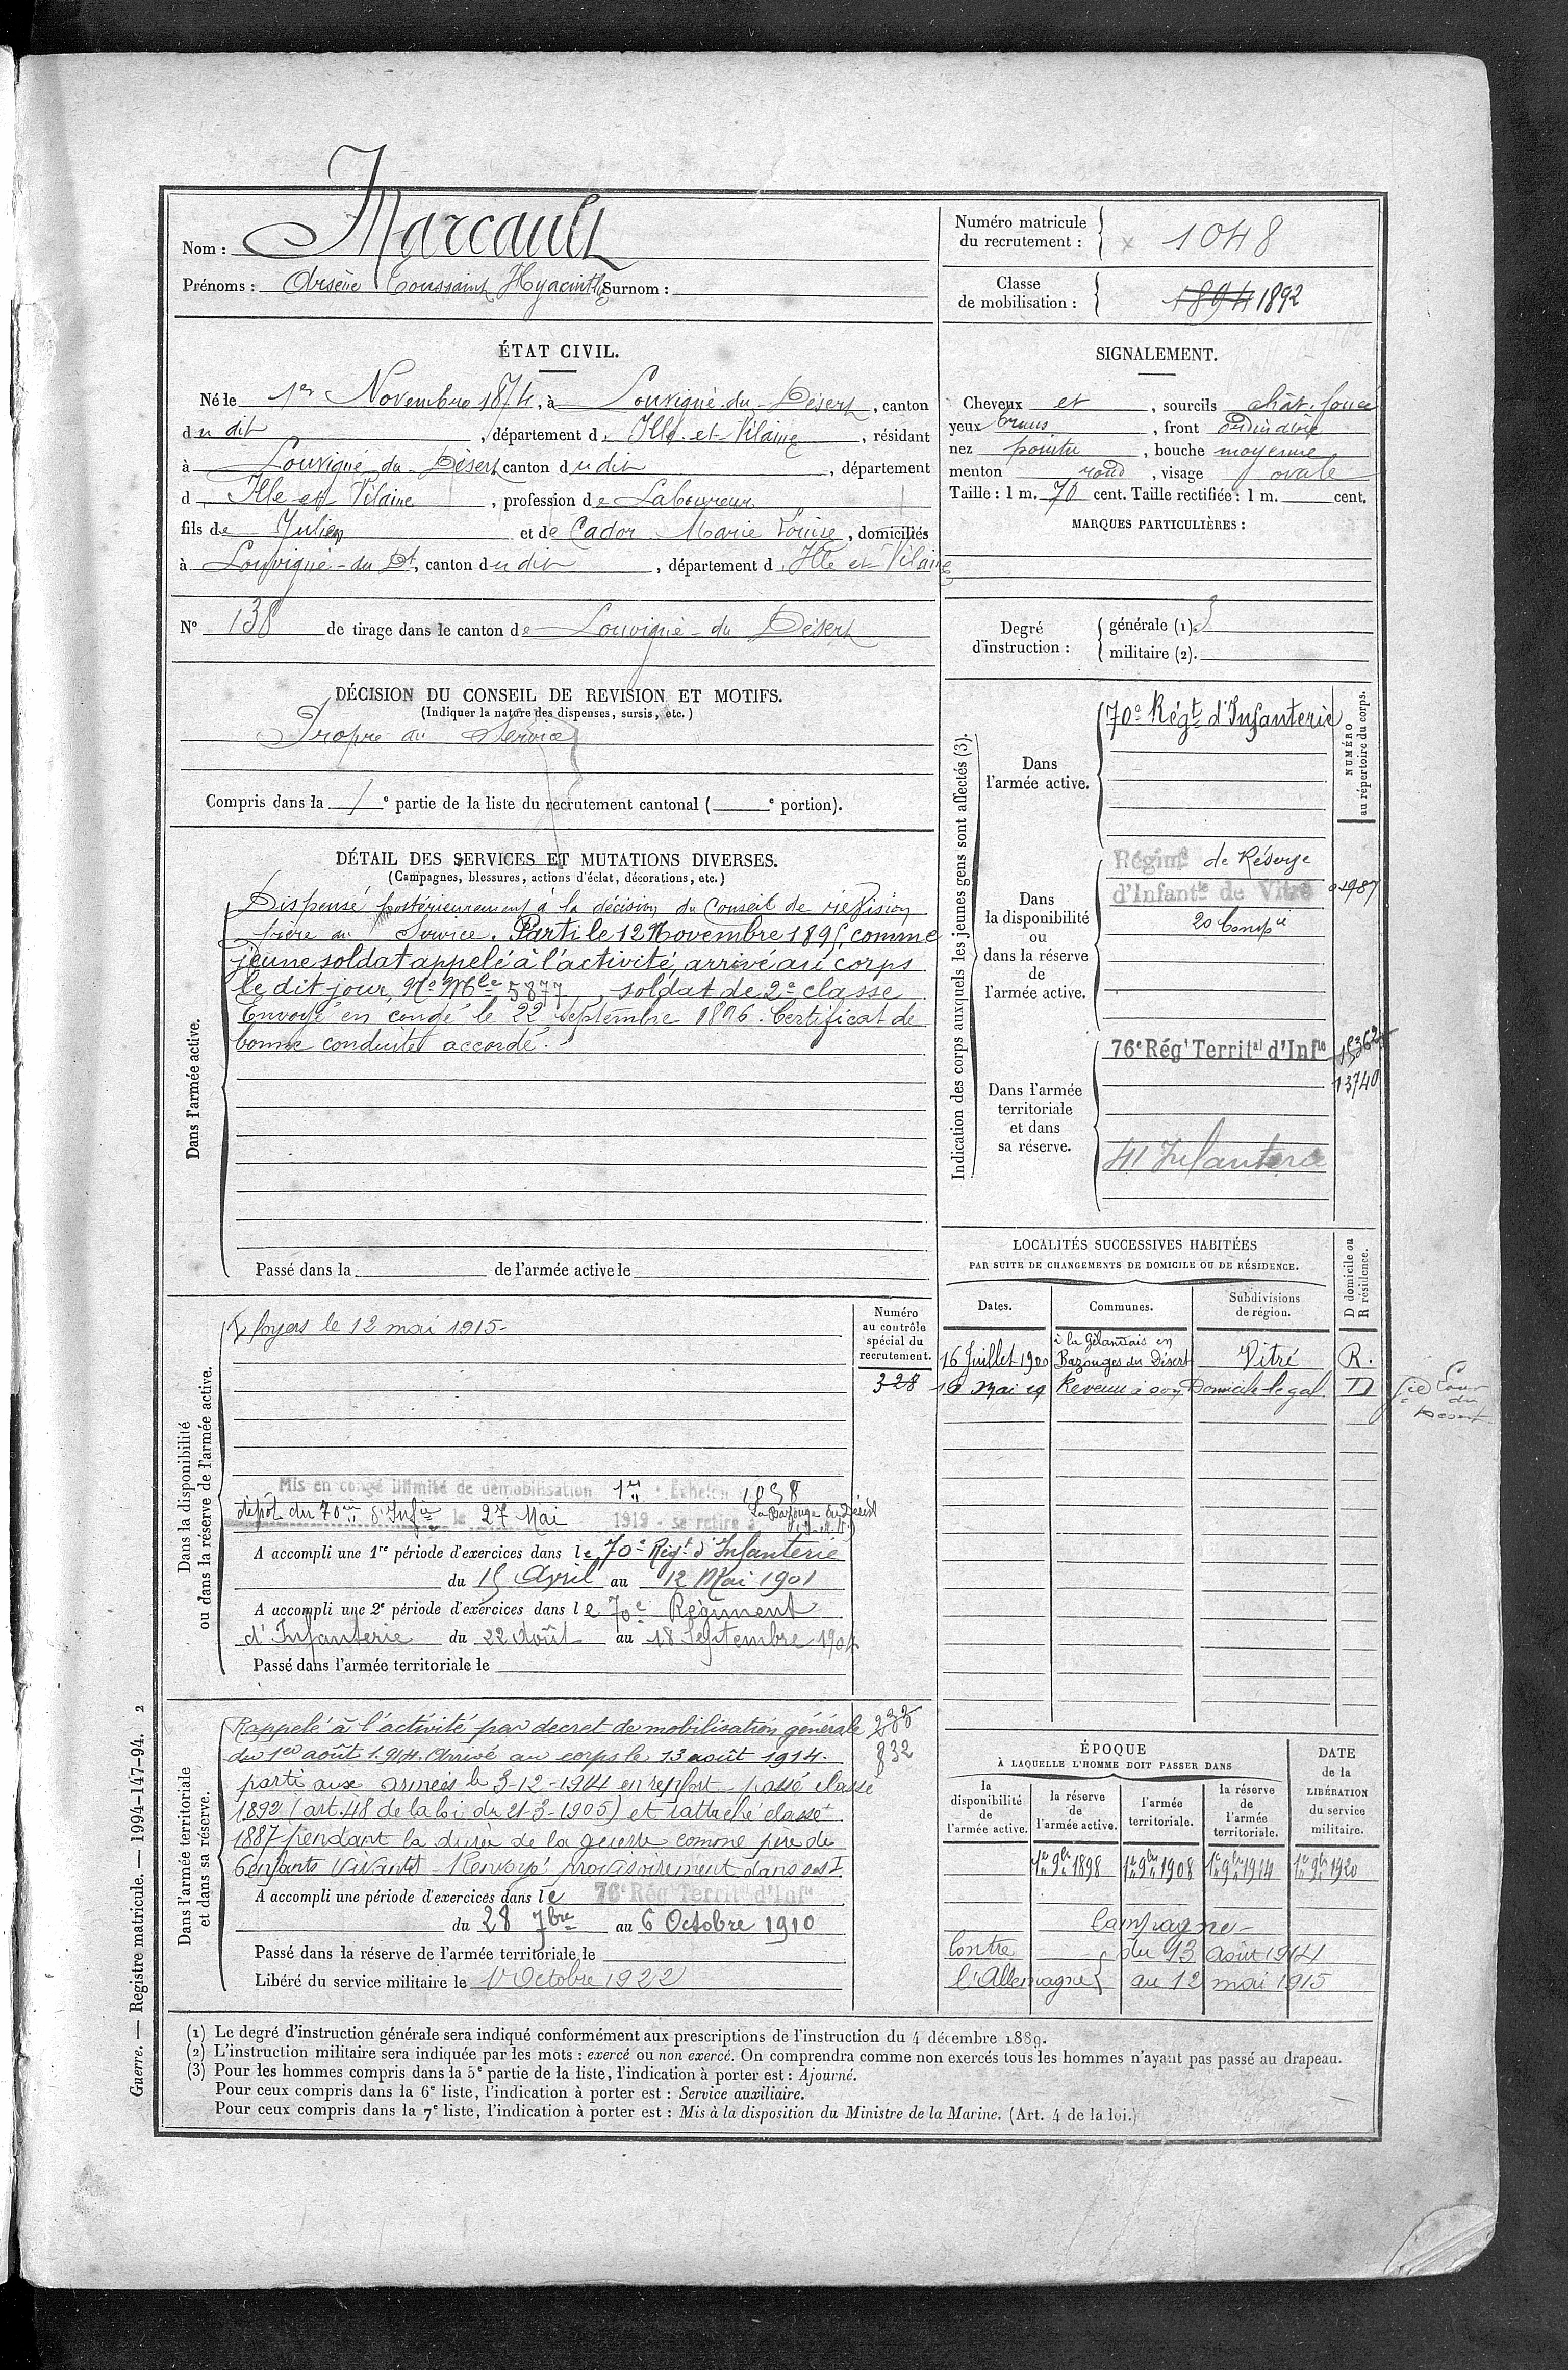 Nom : Marcault
Prénoms : Arsène Toussaint Hyacinthe Surnom :
Numéro matricule du recrutement : 1048
Classe de mobilisation : 1894 1892
ÉTAT CIVIL.
Né le 1er Novembre 1874, à Louvigné-du-Désert, canton
du dit, département d. Ille-et-Vilaine, résidant
à Louvigné du Désert canton du dit, département
d Ille et Vilaine, profession de Laboureur
fils de Julien et de Cador Marie Louise, domiciliés
à Louvigné-du Dt, canton du dit, département d Ille et Vilaine
N° 138 de tirage dans le canton de Louvigné-du Désert
SIGNALEMENT.
Cheveux et, sourcils chât. foncé
yeux bruns, front ordinaire
nez pointu, bouche moyenne
menton rond, visage ovale
Taille : 1 m. 70 cent. Taille rectifiée : 1 m. cent.
MARQUES PARTICULIÈRES :
Degré d'instruction :
générale (1). 3
militaire (2).
DÉCISION DU CONSEIL DE REVISION ET MOTIFS.
(Indiquer la nature des dispenses, sursis, etc.)
Propre au Service
Compris dans la 1e partie de la liste du recrutement cantonal ( e portion).
DÉTAIL DES SERVICES ET MUTATIONS DIVERSES.
(Campagnes, blessures, actions d'éclat, décorations, etc.)
Dans l'armée active.
Dispensé postérieurement à la décision du Conseil de révision
frère au Service. Parti le 12 Novembre 1895, comme
jeune soldat appelé à l'activité, arrivé au corps
le dit jour, No Mle 5877, soldat de 2e classe
Envoyé en congé le 22 septembre 1896. Certificat de
bonne conduite accordé.
Passé dans la de l'armée active le
Indication des corps auxquels les jeunes gens sont affectés (3).
NUMÉRO au répertoire du corps.
Dans l'armée active.
70e Régt d'Infanterie
Dans la disponibilité ou dans la réserve de l'armée active.
Régimt de Réserve
d'Infantie de Vitré
20 Compie
Dans l'armée territoriale et dans sa réserve.
76e Rég' Territal d'Infie
13740
41 Infanterie
LOCALITÉS SUCCESSIVES HABITÉES
PAR SUITE DE CHANGEMENTS DE DOMICILE OU DE RÉSIDENCE.
Dates.
Communes.
Subdivisions de région.
D domicile ou R résidence.
16 Juillet 1900 à la Gélandais en Bazouges du Désert Vitré R.
16 Mai 19 Revenu à son Domicile légal D
Dans la disponibilité ou dans la réserve de l'armée active.
foyers le 12 mai 1915-
Numéro au contrôle spécial du recrutement.
328
Mis en congé illimité de démobilisation 1er Echelon 1058
dépôt du 70me d'Infie le 27 Mai 1919 - se retire à La Bazouge du Désert
A accompli une 1re période d'exercices dans le 70e Régt d'Infanterie
du 15 Avril au 12 Mai 1901
A accompli une 2e période d'exercices dans le 70e Régiment
d'Infanterie du 22 Août au 18 Septembre 1904
Passé dans l'armée territoriale le
Dans l'armée territoriale et dans sa réserve.
Rappelé à l'activité par decret de mobilisation générale
du 1er août 1914. Arrivé au corps le 13 août 1914.
parti aux armées le 3-12-1914 en renfort - passé classe
1892 (art. 48 de la loi du 21-3-1905) et rattaché classe
1887 pendant la durée de la guerre comme père de
6 enfants vivants - Renvoyé provisoirement dans ses
832
A accompli une période d'exercices dans le 76e Rég Territal d'Infie
du 28 7bre au 6 Octobre 1910
Passé dans la réserve de l'armée territoriale le
Libéré du service militaire le 1r Octobre 1922
ÉPOQUE
À LAQUELLE L'HOMME DOIT PASSER DANS
la disponibilité de l'armée active.
la réserve de l'armée active.
l'armée territoriale.
la réserve de l'armée territoriale.
DATE de la LIBÉRATION du service militaire.
1er 9bre 1898 1er 9bre 1908 1er 9bre 1914 1er 9bre 1920
Campagne-
Contre du 13 août 1914
l'Allemagne au 12 mai 1915
(1) Le degré d'instruction générale sera indiqué conformément aux prescriptions de l'instruction du 4 décembre 1889.
(2) L'instruction militaire sera indiquée par les mots : exercé ou non exercé. On comprendra comme non exercés tous les hommes n'ayant pas passé au drapeau.
(3) Pour les hommes compris dans la 5e partie de la liste, l'indication à porter est : Ajourné.
Pour ceux compris dans la 6e liste, l'indication à porter est : Service auxiliaire.
Pour ceux compris dans la 7e liste, l'indication à porter est : Mis à la disposition du Ministre de la Marine. (Art. 4 de la loi.)
Guerre. — Registre matricule. — 1994-147-94. 2